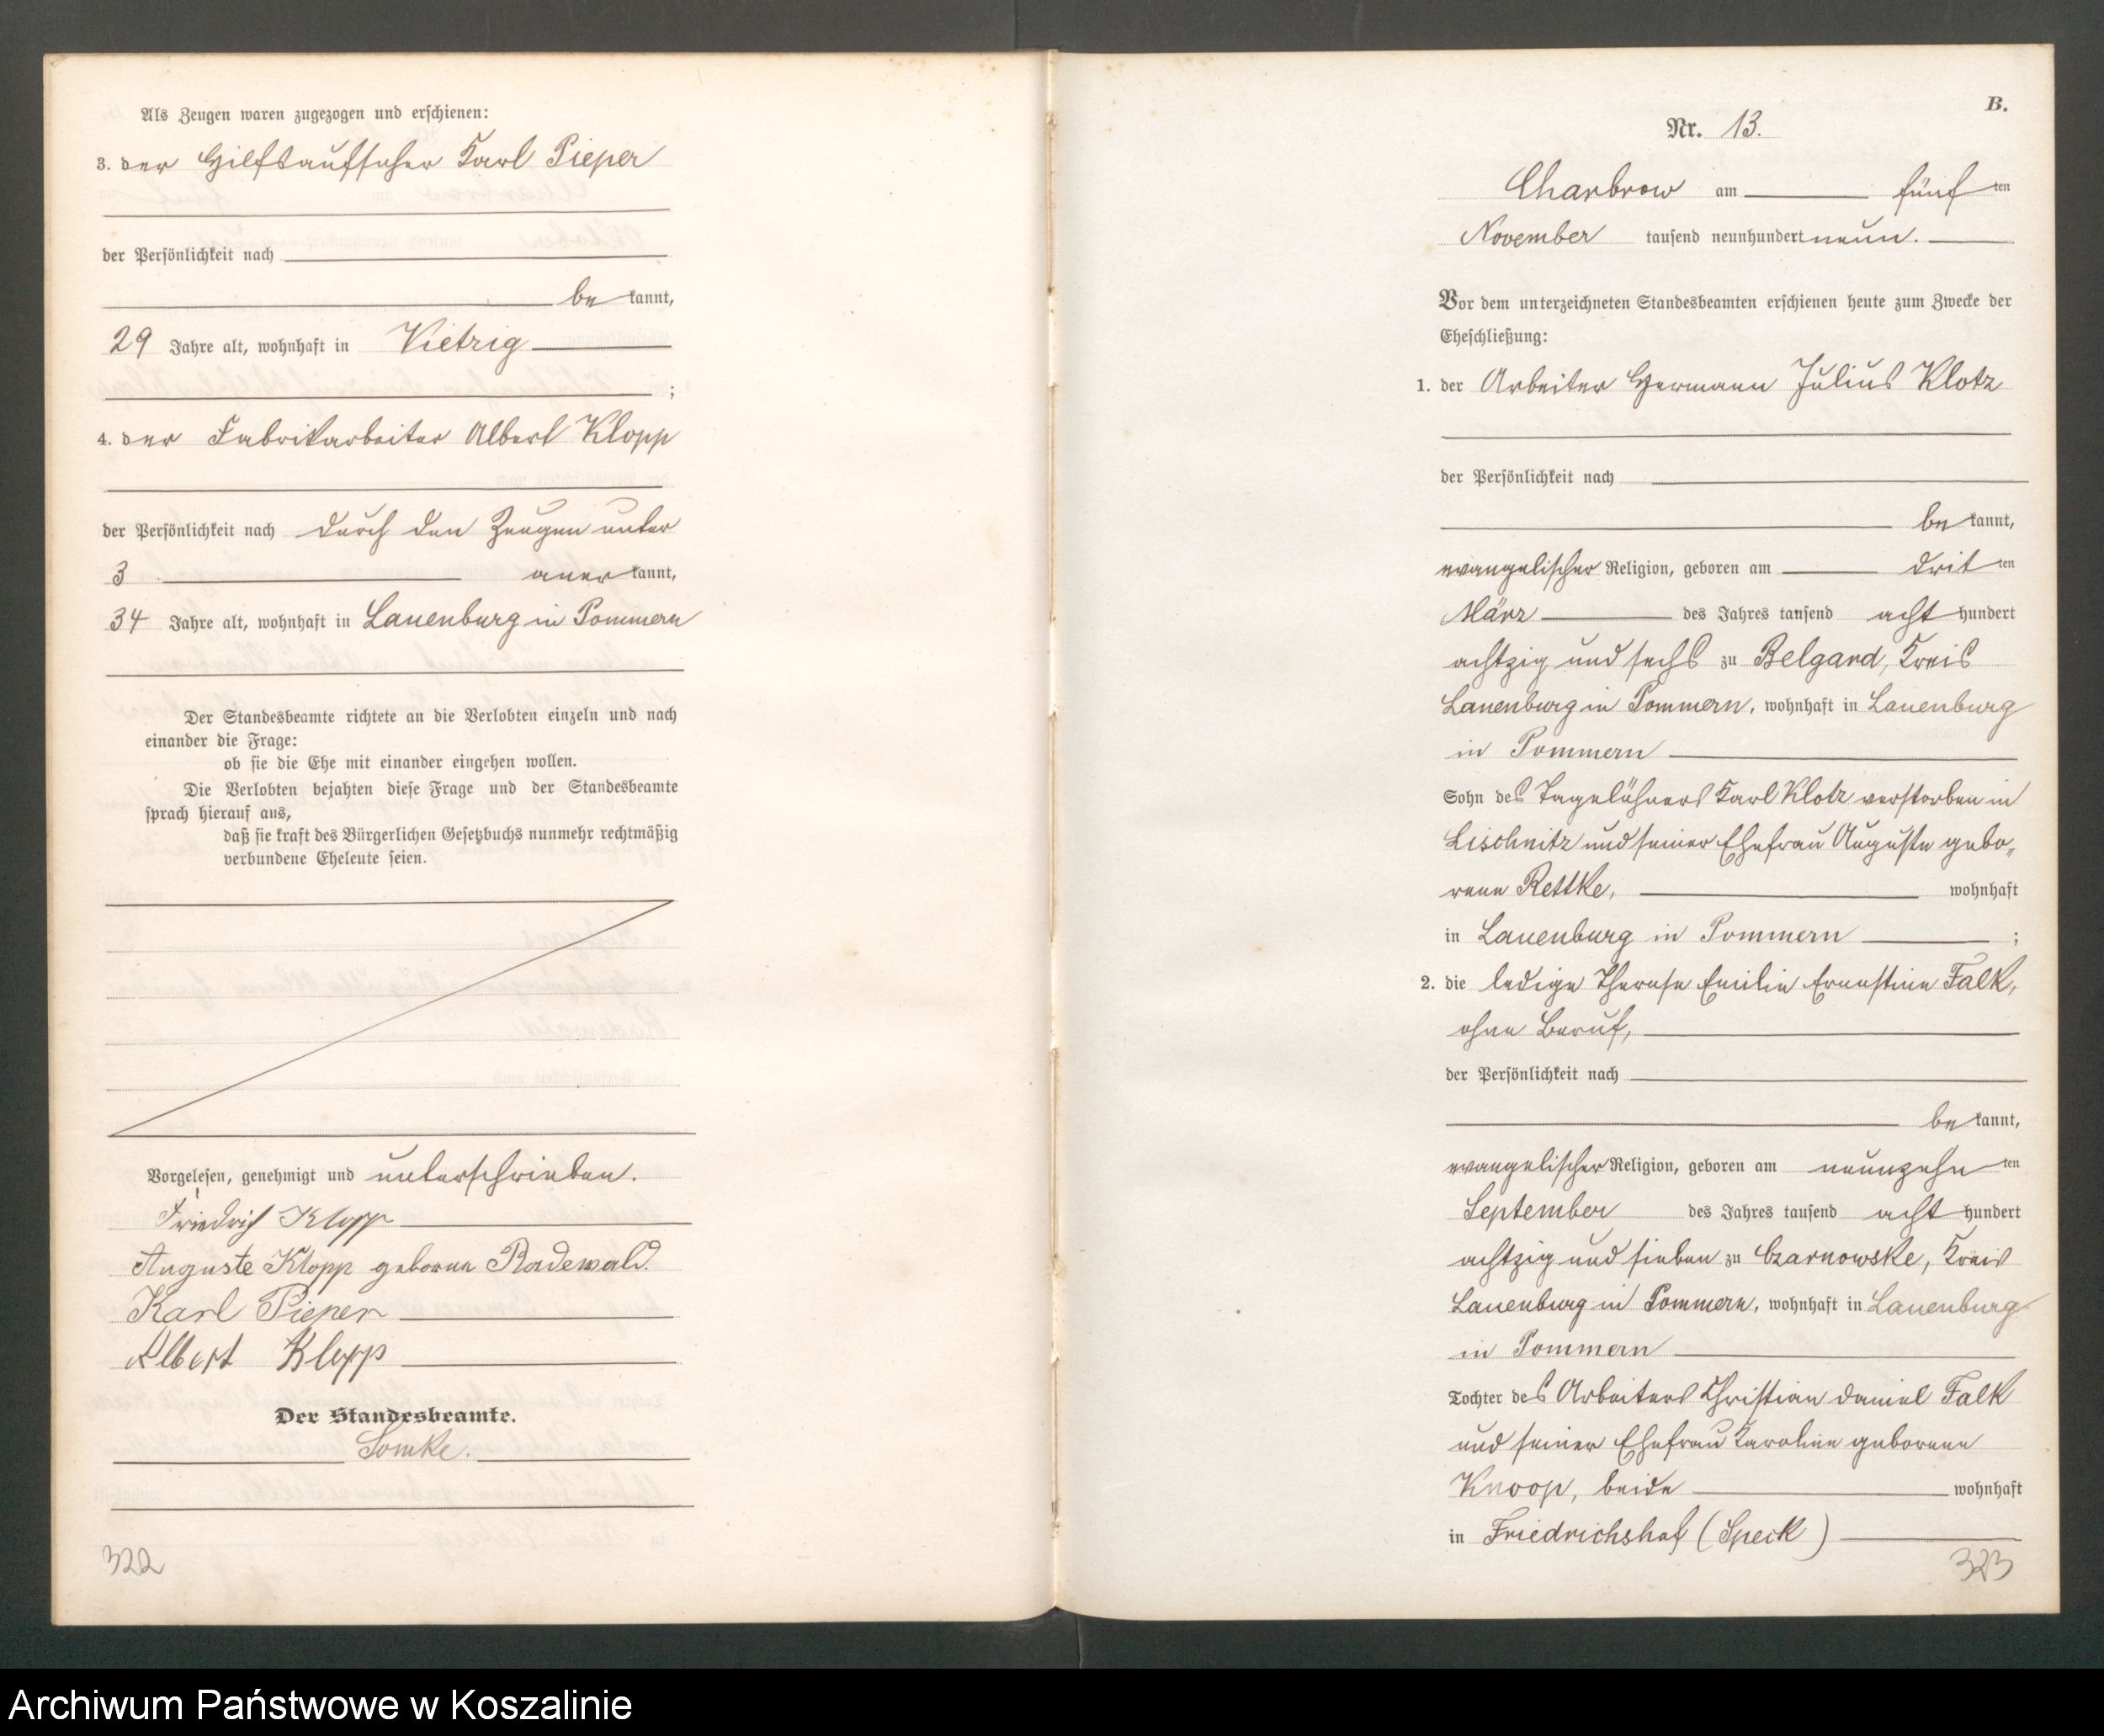 Als Zeugen waren zugezogen und erschienen:
3. der Hilfsaufseher Karl Pieper
der Persönlichkeit nach
be kannt,
29 Jahre alt, wohnhaft in Vietzig
;
4. der Fabrikarbeiter Albert Klopp
der Persönlichkeit nach durch den Zeugen unter
3 aner kannt,
34 Jahre alt, wohnhaft in Lauenburg in Pommern
Der Standesbeamte richtete an die Verlobten einzeln und nach
einander die Frage:
ob sie die Ehe mit einander eingehen wollen.
Die Verlobten bejahten diese Frage und der Standesbeamte
sprach hierauf aus,
daß sie kraft des Bürgerlichen Gesetzbuchs nunmehr rechtmäßig
verbundene Eheleute seien.
Vorgelesen, genehmigt und unterschrieben.
Friedrich Klopp
Auguste Klopp geborne Radewald.
Karl Pieper
Albert Klopp
Der Standesbeamte.
Somke.
322
B.
Nr. 13.
Charbrow am fünf ten
November tausend neunhundert neun.
Vor dem unterzeichneten Standesbeamten erschienen heute zum Zwecke der
Eheschließung:
1. der Arbeiter Hermann Julius Klotz
der Persönlichkeit nach
be kannt,
evangelischer Religion, geboren am drit ten
März des Jahres tausend acht hundert
achtzig und sechs zu Belgard, Kreis
Lauenburg in Pommern, wohnhaft in Lauenburg
in Pommern
Sohn des Tagelöhners Karl Klotz verstorben in
Lischnitz und seiner Ehefrau Auguste gebo„
rene Rettke, wohnhaft
in Lauenburg in Pommern ;
2. die ledige Therese Emilie Ernestine Falk,
ohne Beruf,
der Persönlichkeit nach
be kannt,
evangelischer Religion, geboren am neunzehn ten
September des Jahres tausend acht hundert
achtzig und sieben zu Czarnowske, Kreis
Lauenburg in Pommern, wohnhaft in Lauenburg
in Pommern
Tochter des Arbeiters Christian Daniel Falk
und seiner Ehefrau Karoline geborene
Knoop, beide wohnhaft
in Friedrichshof (Speck)
323
Archiwum Państwowe w Koszalinie